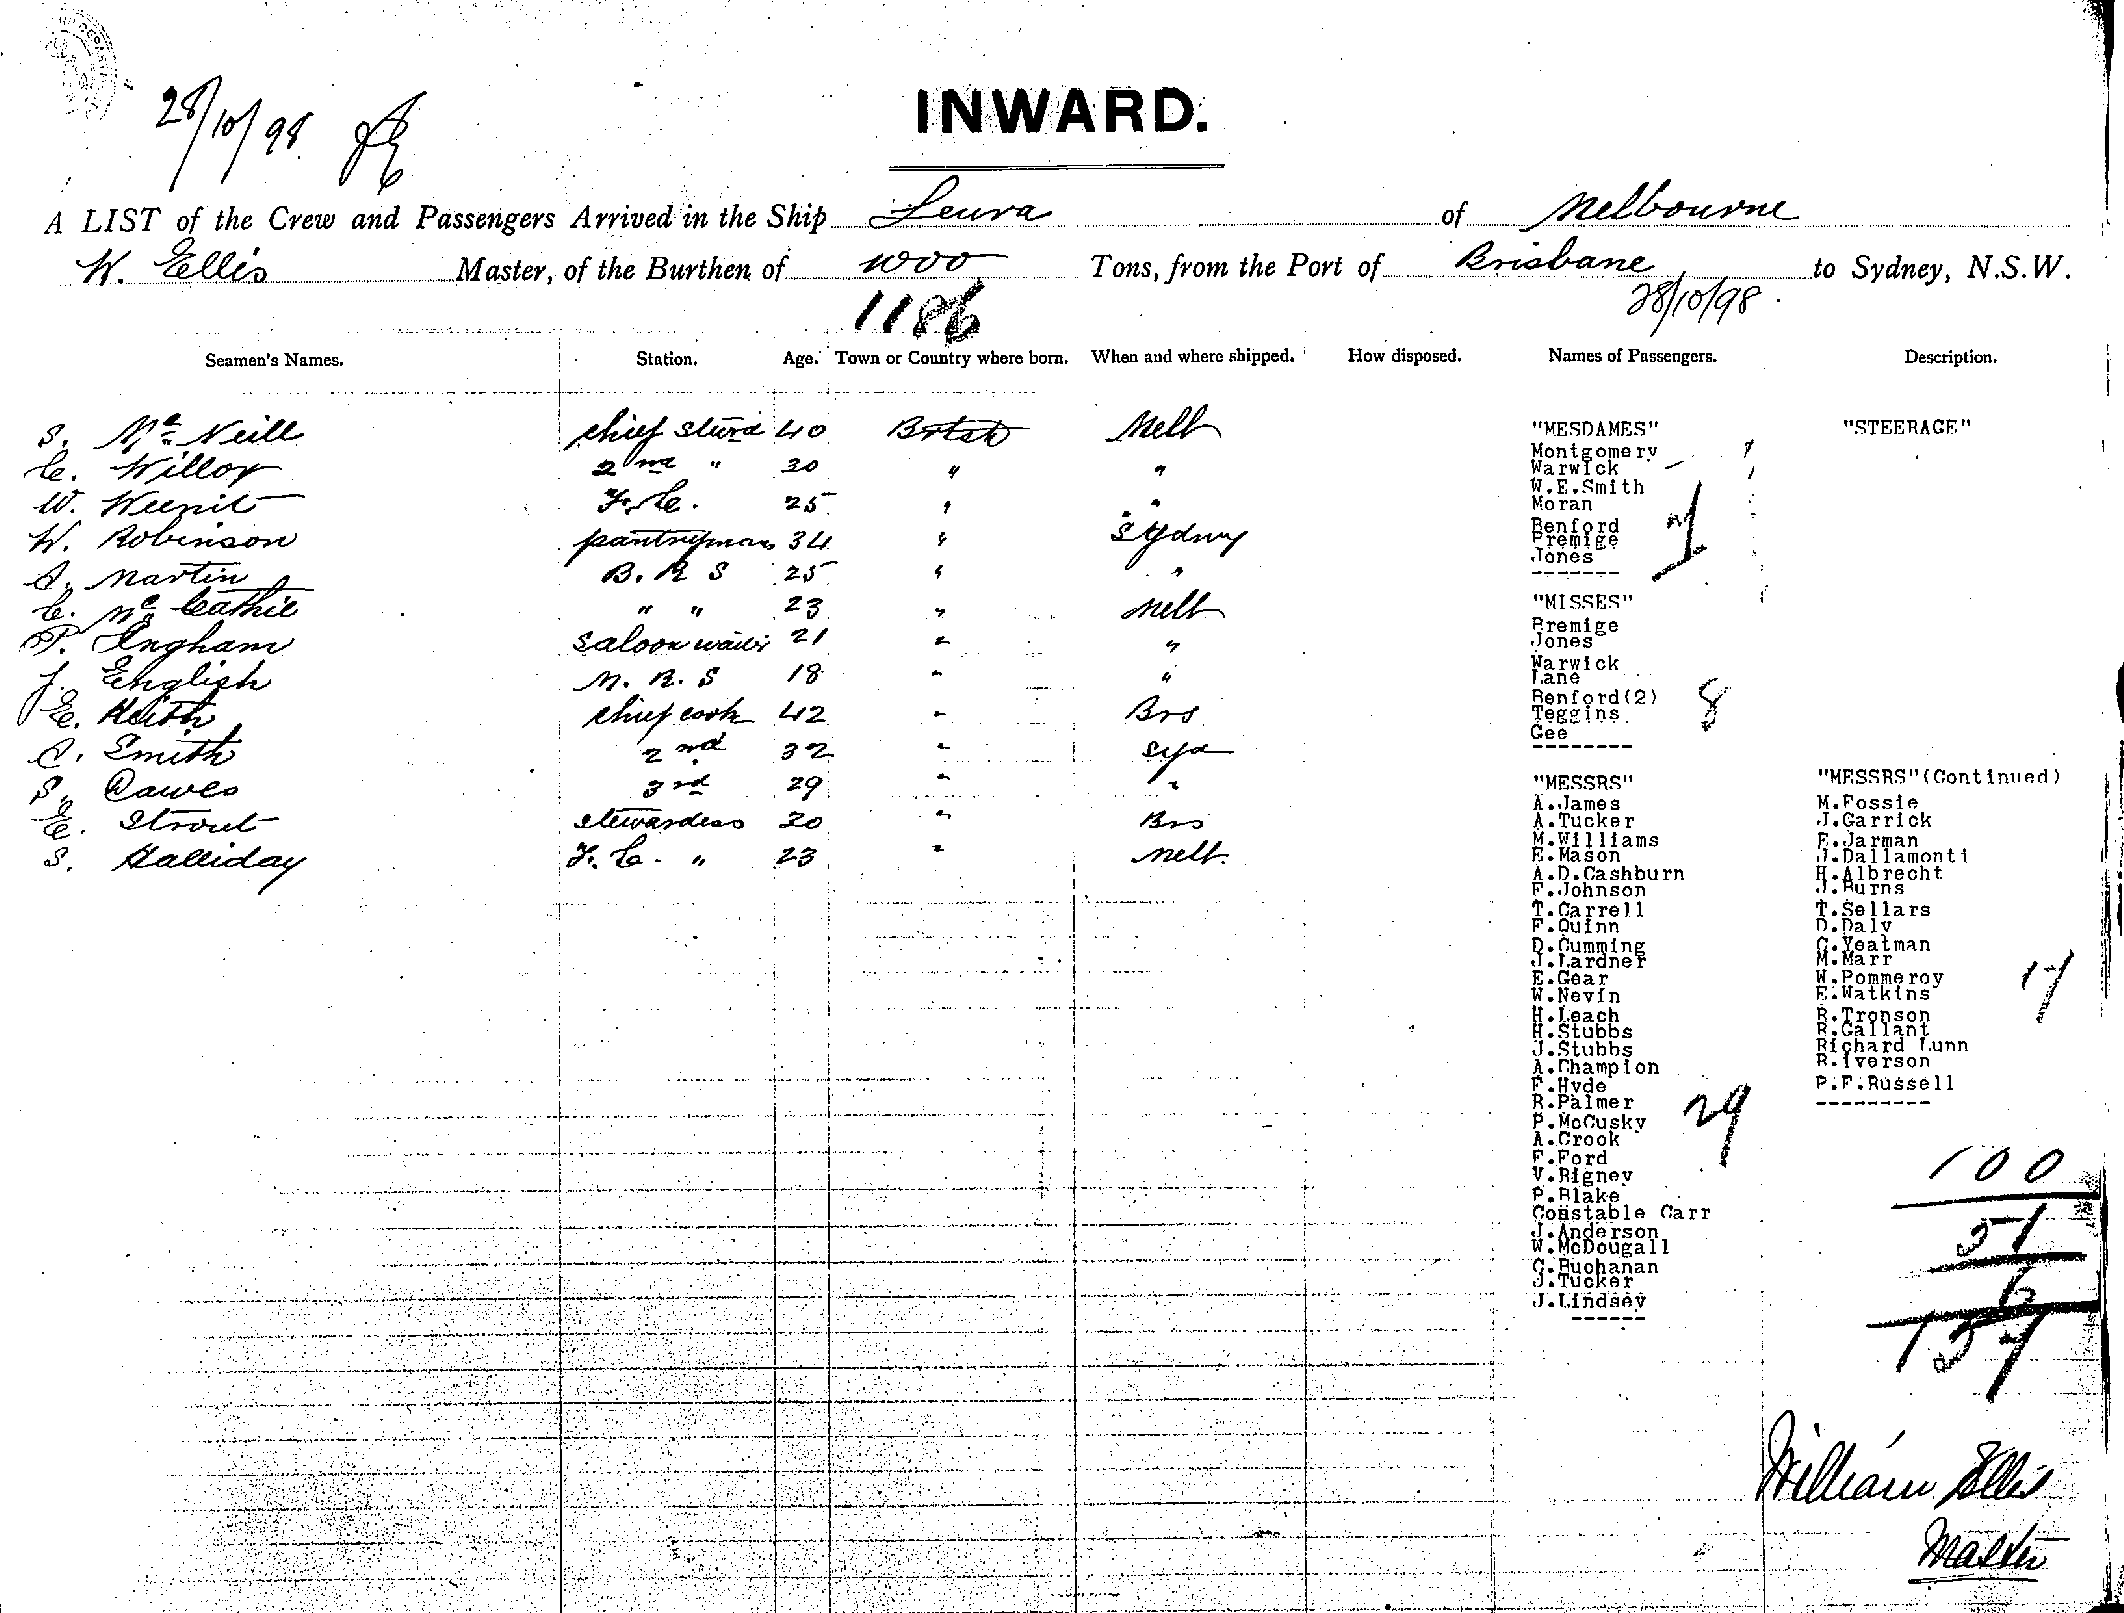 28/10/98
INWARD.
A LIST of the Crew and Passengers Arrived in the Ship Leura of Melbourne
W. Ellis Master, of the Burthen of Tons, from the Port of Brisbane to Sydney, N.S.W.
1186 28/10/98
Seamen's Names. Station. Age. Town or Country where born. When and where shipped. How disposed. Names of Passengers. Description.
S. McNeill chief stwrd 40 Melb
C. Willox 2nd " 30 " "
W. F.C. 25 " "
W. Robinson pantryman 34 " Sydney
A. Martin B. R S 25 " "
C. McCathie " " 23 " Melb
P. Ingham saloon waiter 21 " "
J. English M. R. S 18 " "
E. Keith chief cook 42 " Brs
A. Smith 2nd 32 " Syd
S. Dawes 3rd 29 " "
E. Strout stewardess 30 " Brs
S. Halliday F. C. " 23 " Melb.
"MESDAMES"
Montgomery
Warwick
W.E.Smith
Moran
Benford
Premige
Jones
7
"MISSES"
Bremige
Jones
Warwick
Lane
Benford(2)
Teggins
Gee
8
"MESSRS"
A.James
A.Tucker
M.Williams
E.Mason
A.D.Cashburn
F.Johnson
T.Carrell
F.Quinn
D.Cumming
J.Lardner
E.Gear
W.Nevin
H.Leach
H.Stubbs
J.Stubbs
A.Champion
F.Hyde
R.Palmer
P.McCusky
A.Crook
F.Ford
V.Rigney
P.Blake
Constable Carr
J.Anderson
W.McDougall
G.Buchanan
J.Tucker
J.Lindsey
29
"STEERAGE"
"MESSRS"(Continued)
M.Fossie
J.Garrick
F.Jarman
J.Dallamonti
H.Albrecht
J.Burns
T.Sellars
D.Daly
G.Yeatman
M.Marr
W.Pommeroy
E.Watkins
R.Tronson
R.Gallant
Richard Lunn
R.Iverson
P.F.Russell
17
100
51
6
157
William Ellis
Master